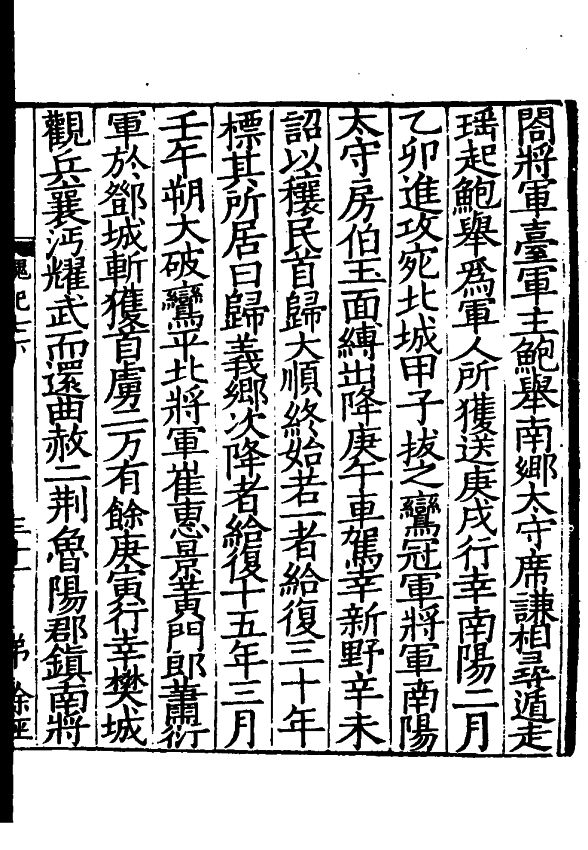 閣將軍臺軍主鮑舉南鄉太守席謙相尋遁走
瑶起鮑舉爲軍人所獲送庚戌行幸南陽二月
乙卯進攻宛北城甲子拔之鸞冠軍將軍南陽
太守房伯玉面縛出降庚午車駕幸新野辛未
詔以穰民首歸大順終始若一者給復三十年
標其所居曰歸義鄉次降者給復十五年三月
壬午朔大破鸞平北將軍崔惠景黄門郎蕭衍
軍於鄧城斬獲首虜二万有餘庚寅行幸樊城
觀兵襄沔耀武而還曲赦二荆魯陽郡鎮南將
魏紀七下